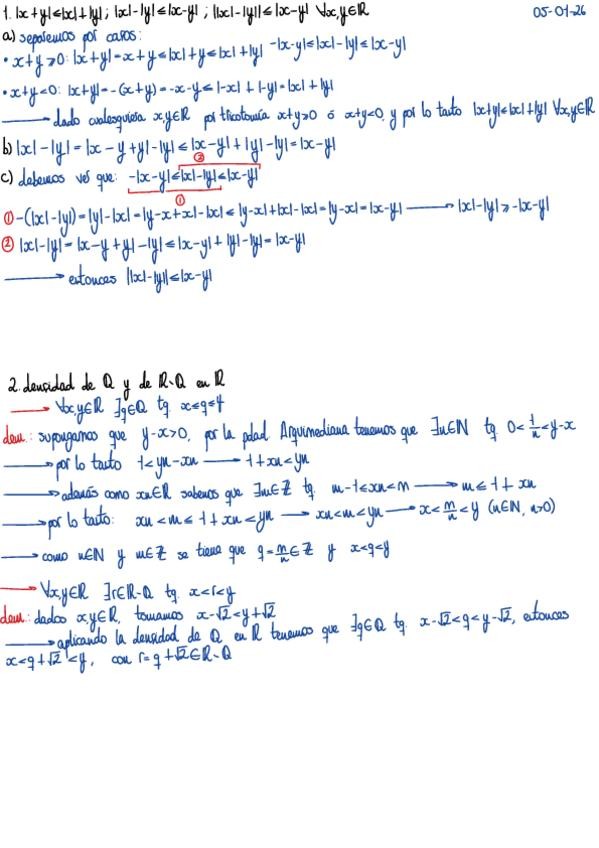 1. |x+y|≤|x|+|y|; |x|-|y|≤|x-y|; ||x|-|y||≤|x-y| ∀x,y∈ℝ 05-01-26
a) separemos por casos:
• x+y≥0: |x+y|=x+y≤|x|+y≤|x|+|y| -|x-y|≤|x|-|y|≤|x-y|
• x+y<0: |x+y|=-(x+y)=-x-y≤|-x|+|-y|=|x|+|y|
⟶ dado cualesquiera x,y∈ℝ por tricotomía x+y≥0 ó x+y<0, y por lo tanto |x+y|≤|x|+|y| ∀x,y∈ℝ
b) |x|-|y|=|x-y+y|-|y|≤|x-y|+|y|-|y|=|x-y|
②
c) debemos ver que: -|x-y|≤|x|-|y|≤|x-y|
①
① -(|x|-|y|)=|y|-|x|=|y-x+x|-|x|≤|y-x|+|x|-|x|=|y-x|=|x-y| ⟶ |x|-|y|≥-|x-y|
② |x|-|y|=|x-y+y|-|y|≤|x-y|+|y|-|y|=|x-y|
⟶ entonces ||x|-|y||≤|x-y|
2. densidad de ℚ y de ℝ∖ℚ en ℝ
⟶ ∀x,y∈ℝ ∃q∈ℚ tq. x≤q≤y
dem.: supongamos que y-x>0, por la pdad. Arquimediana tenemos que ∃n∈ℕ tq. 0<1/n<y-x
⟶ por lo tanto 1<yn-xn ⟶ 1+xn<yn
⟶ además como xn∈ℝ sabemos que ∃m∈ℤ tq. m-1≤xn<m ⟶ m≤1+xn
⟶ por lo tanto: xn<m≤1+xn<yn ⟶ xn<m<yn ⟶ x<m/n<y (n∈ℕ, n>0)
⟶ como n∈ℕ y m∈ℤ se tiene que q=m/n∈ℤ y x<q<y
⟶ ∀x,y∈ℝ ∃r∈ℝ∖ℚ tq. x<r<y
dem.: dados x,y∈ℝ, tomamos x-√2<y+√2
⟶ aplicando la densidad de ℚ en ℝ tenemos que ∃q∈ℚ tq. x-√2<q<y-√2, entonces
x<q+√2<y, con r=q+√2∈ℝ∖ℚ